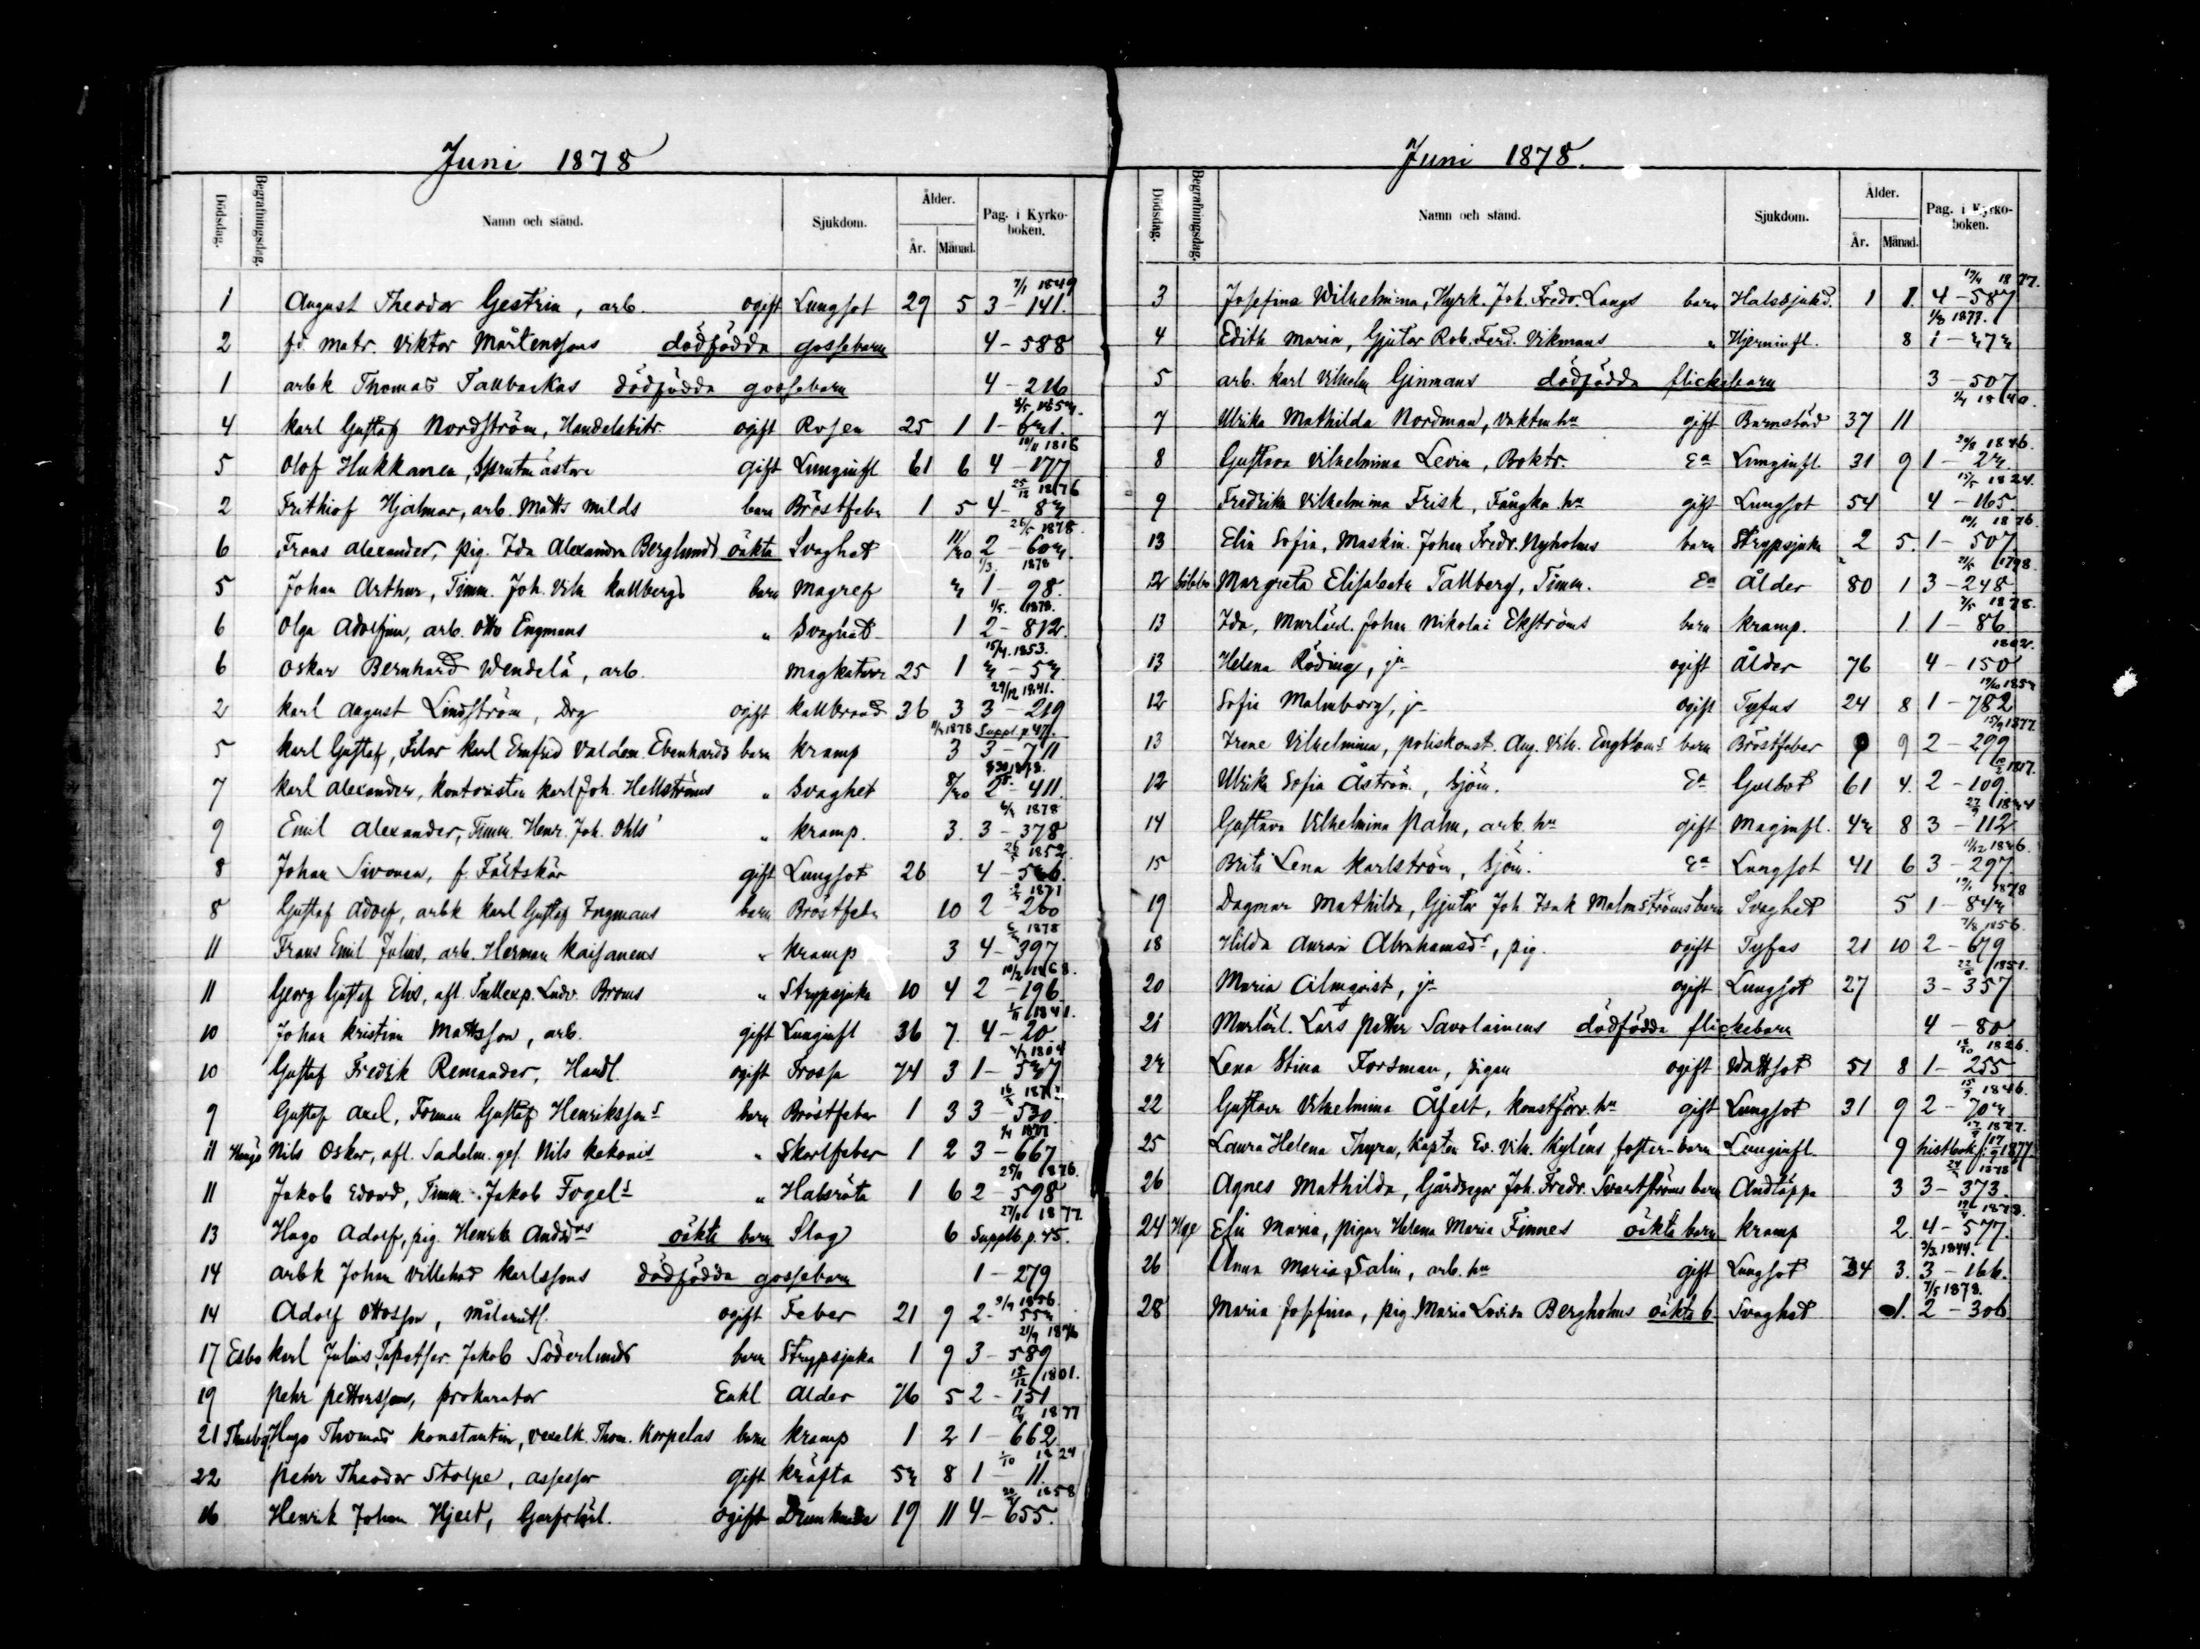 Juni 1878
Dödsdag. Begrafningsdag. Namn och stånd. Sjukdom. Ålder. År. Månad. Pag. i Kyrkoboken.
7/1 1849
1 August Theodor Gestrin, arb. ogift Lungsot 29 5 3 – 141.
2 fd. matr. Viktor Mårtenssons dödfödda gossebarn 4 – 588
1 arbk Thomas Tallbackas dödfödda gossebarn 4 – 216
4 Karl Gustaf Nordström, Handelsbitr. ogift Rosen 25 1 1 –
10/11 1816
5 Olof Hukkanen, Sprutmästare gift Lunginfl 61 6 4 – 177
25/12 1876
2 Frithiof Hjalmar, arb. Matts Milds barn Bröstfebr 1 5 4 –
26/5 1878.
6 Frans Alexander, pig. Ida Alexandra Berglunds oäkta Svaghet 2 –
1/3. 1878
5 Johan Arthur, Timm. Joh. Vilh. Kullbergs barn Magref 1 – 98.
1/5. 1878.
6 Olga Adolfina, arb. Otto Engmans " Svaghet 1 2 – 812.
15/4. 1853.
6 Oskar Bernhard Wendelä, arb. Magkatarr 25 1
29/12 1841.
2 Karl August Lindström, Drg ogift Kallbrand 36 3 3 – 219
1878 Suppl. p. 47.
5 Karl Gustaf, Filar Karl Emfrid Valdem. Ebenhards barn Kramp 3 3 – 711
7 Karl Alexander, Kontoristen Karl Joh. Hellströms " Svaghet 2 – 411.
1878
9 Emil Alexander, Timm. Henr. Joh. Ohls' " Kramp. 3. 3 – 378
1852
8 Johan Sivonen, f. Fältskär gift Lungsot 26 4 –
1871
8 Gustaf Adolf, arbk Karl Gustaf Ingmans barn Bröstfebr 10 2 – 260
1878
11 Frans Emil Julius, arb. Herman Kaisanens " Kramp 3 4 – 397
1868.
11 Georg Gustaf Elis, afl. Tullexp. Ludv. Broms " Strypsjuka 10 4 2 – 196
1841.
10 Johan Kristian Mattsson, arb. gift Lunginfl 36 7. 4 – 20.
1804
10 Gustaf Fredrik Remander, Handl. ogift Frossa 74 3 1 –
9 Gustaf Axel, Forman Gustaf Henrikssons barn Bröstfeber 1 3 3 – 530.
11 Nils Oskar, afl. Sadelm. ges. Nils Kekonis " Skarlfeber 1 2 3 – 667
25/11 1876.
11 Jakob Edvard, Timm. Jakob Fogels " Halsröta 1 6 2 – 598
27/11 1877.
13 Hugo Adolf, pig. Henrika Andsdrs oäkta barn Slag 6 Supplb p. 45.
14 arbk Johan Villehad Karlssons dödfödda gossebarn 1 – 279
1856.
14 Adolf Ottosson, målaretl. ogift Feber 21 9 2 –
17 Esbo Karl Julius, Tapetser. Jakob Söderlunds barn Strypsjuka 1 9 3 – 589
15/12 1801.
19 Pehr Pettersson, prokurator Enkl Ålder 76 5 2 – 151
1877
21 Hugo Thomas Konstantin, Thom. Korpelas barn Kramp 1 2 1 – 662
1/10 1824
22 Pehr Theodor Stolpe, assessor gift Kräfta 8 1 – 11.
1858
16 Henrik Johan Hjelt, ogift Drunknade 19 11 4 – 655.
Juni 1878.
Dödsdag. Begrafningsdag. Namn och stånd. Sjukdom. Ålder. År. Månad. Pag. i Kyrkoboken.
1877.
3 Josefina Wilhelmina, Hyrk. Joh. Fredr. Langs barn Halssjukd. 1 1. 4 – 587
1877.
4 Edith Maria, Gjutar Rob. Ferd. Vikmans " Hjerninfl. 8
5 arb. Karl Vilhelm Ginmans dödfödda flickebarn 3 – 507
1840.
7 Ulrika Mathilda Nordman, Vaktm hu gift Barnsbörd 37 11
1846.
8 Gustava Vilhelmina Levin, Boktr. Ea Lunginfl. 31 9 1 –
1824.
9 Fredrika Vilhelmina Frisk, Fångkn. hu gift Lungsot 54 4 – 165.
1876.
13 Elin Sofia, Maskin. Johan Fredr. Nyholms barn Strypsjuka 2 5. 1 – 507
1798.
12 Margreta Elisabeth Tallberg, Timm. Ea Ålder 80 1 3 – 248
1878.
13 Ida, Murlärl. Johan Nikolai Ekströms barn Kramp. 1. 1 – 86
1802.
13 Helena Röding, jn ogift Ålder 76 4 – 150
12 Sofia Malmborg, jn ogift Tyfus 24 8 1 – 782
15/9 1877
13 Irene Vilhelmina, poliskonst. Aug. Vilh. Engbloms barn Bröstfeber 9 2 – 299
1817.
12 Ulrika Sofia Åström, Sjöm. Ea Gulsot 61 4. 2 – 109.
14 Gustava Vilhelmina Palm, arb. hu gift Maginfl. 8 3 – 112
15 Brita Lena Karlström, Sjöm. Ea Lungsot 41 6 3 – 297
1878
19 Dagmar Mathilda, Gjutar Joh. Isak Malmströms barn Svaghet 5 1 –
7/8 1856.
18 Hilda Aurora Abrahamsdr, pig. ogift Tyfus 21 10 2 – 679
1851.
20 Maria Almqvist, jn ogift Lungsot 27 3 – 357
21 Murlärl. Lars Petter Savolainens dödfödda flickebarn 4 – 80
1826.
Lena Stina Forsman, pigan ogift Vattsot 51 8 1 – 255
1846.
22 Gustava Vilhelmina Åfelt, Konstförv. hu gift Lungsot 31 9 2 –
1877.
25 Laura Helena Thyra, Kapten Ed. Vilh. Kyléns foster-barn Lunginfl. 9
1878
26 Agnes Mathilda, Gårdseger Joh. Fredr. Svartströms barn Andtäppa 3 3 – 373.
1878.
24 Hge Elin Maria, pigan Helena Maria Finnes oäkta barn Kramp 2 4 – 577.
3/3. 1844.
26 Anna Maria Salin, arb. hu gift Lungsot 34 3. 3 – 166.
7/5 1878.
28 Maria Josefina, pig. Maria Lovisa Bergholms oäkta b. Svaghet 1. 2 – 306